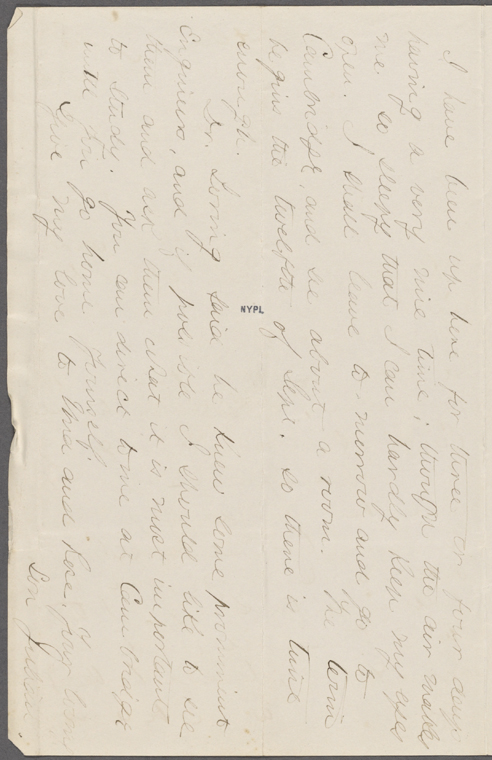 I have been up here for three or four days
having a very nice time; though the air makes
me so sleepy that I can hardly keep my eyes
open. I shall leave to-morrow and go to
Cambridge, and see about a room. The term
begins the twelfth of Sept. so there is time
enough.
Dr. Loring said he knew some prominent
Engineers, and if possible I should like to see
them and ask them what it is most important
to study. You can direct to me at Cambridge
until you go home yourself.
Give my love to and Rose,
Son Julian.
NYPL